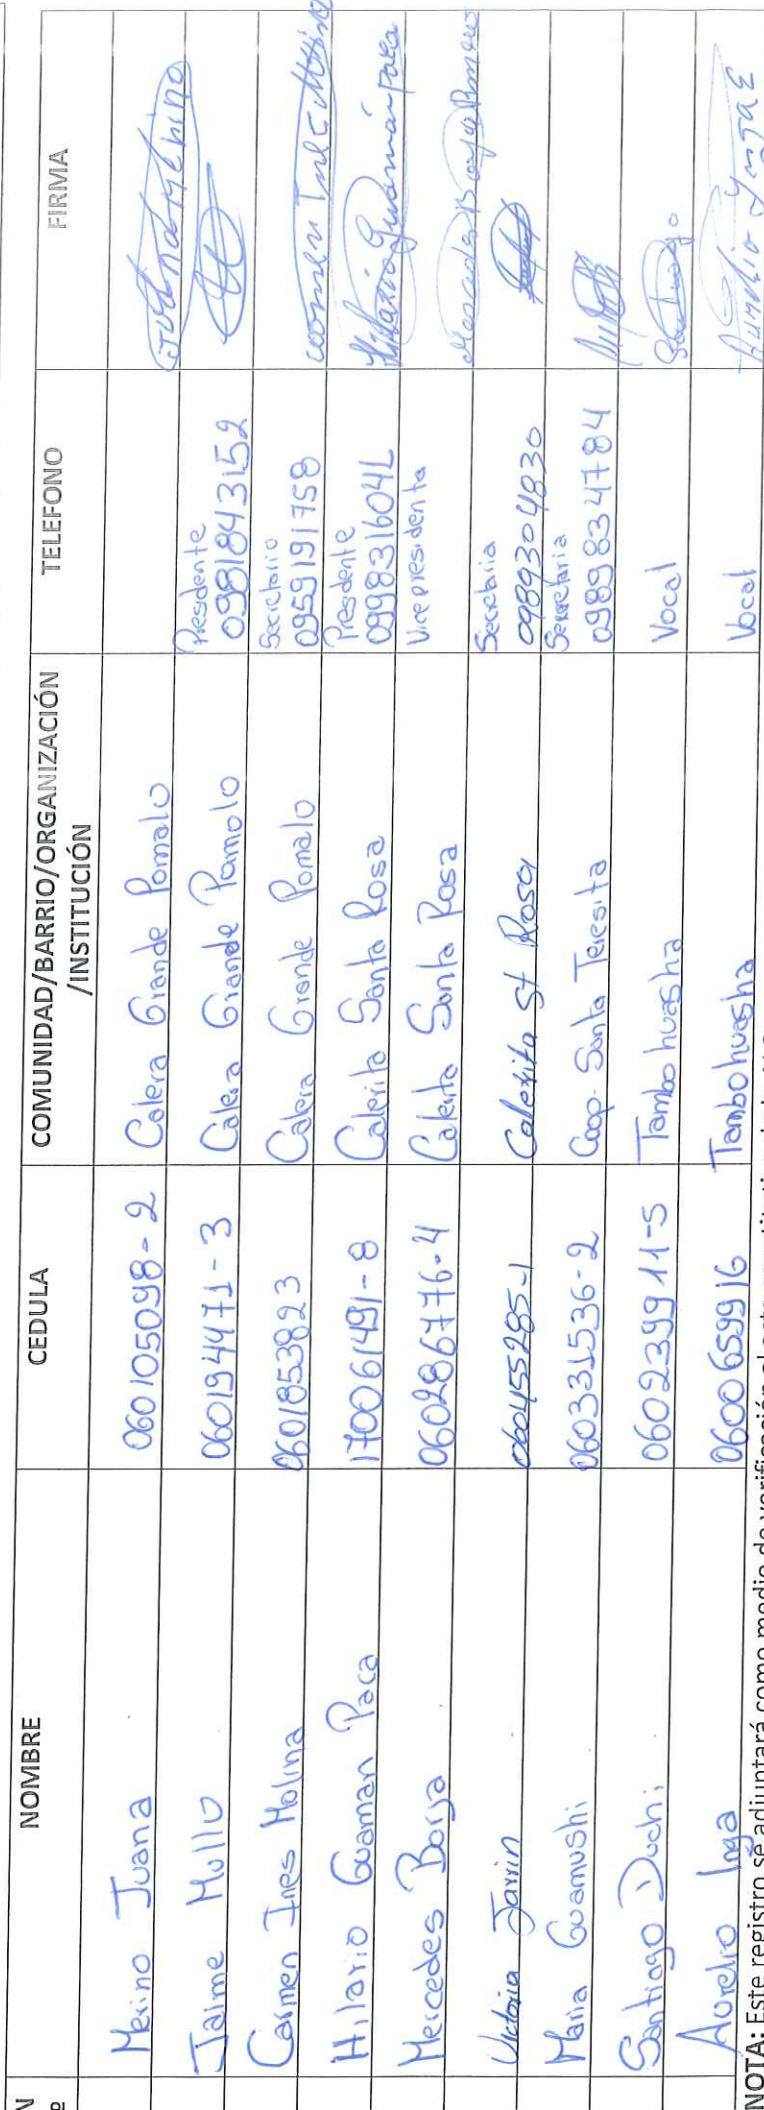 N
º
NOMBRE
CEDULA
COMUNIDAD/BARRIO/ORGANIZACIÓN
/INSTITUCIÓN
TELEFONO
FIRMA
Merino Juana 060105098-2 Calera Grande Pomalo
Jaime Mullo 060194471-3 Calera Grande Pomolo Presidente 0981843152
Carmen Ines Molina 0601853823 Calera Grande Pomalo Secretario 0959191758 Carmen Ines Molina
Hilario Guaman Paca 170061491-8 Calerita Santa Rosa Presidente 099831604L Hilario Guaman Paca
Mercedes Borja 060286776-4 Calerita Santa Rosa Vicepresidenta Mercedes Borja
Victoria Jarrin 060455285-1 Calerita St Rosa Secretaria 0989304830
Maria Guamushi 060331536-2 Coop. Santa Teresita Secretaria 0989834784
Santiago Duchi 060239911-5 Tambohuasha Vocal Santiago
Aurelio Inga 0600659916 Tambohuasha Vocal Aurelio Inga E
NOTA: Este registro se adjuntará como medio de verificación al acto